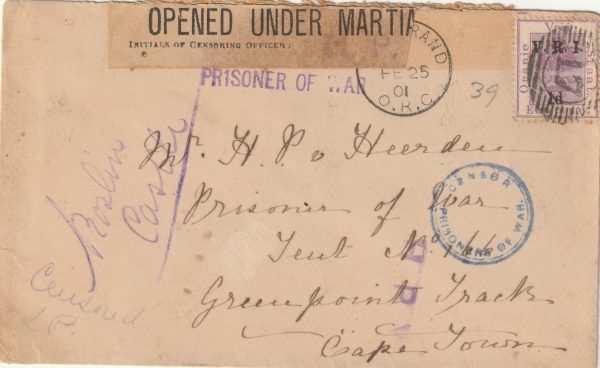 OPENED UNDER MARTIA
INITIALS OF CENSORING OFFICER:
PRISONER OF WAR
RAND
FE 25
01
O.R.C.
39
Oranje Vrij Staat
V.R.I.
1d
Mr. H. P. v Heerden
Prisoner of War
Tent No 166
Greenpoint Track
Cape Town
CENSOR
PRISONERS OF WAR.
Censored